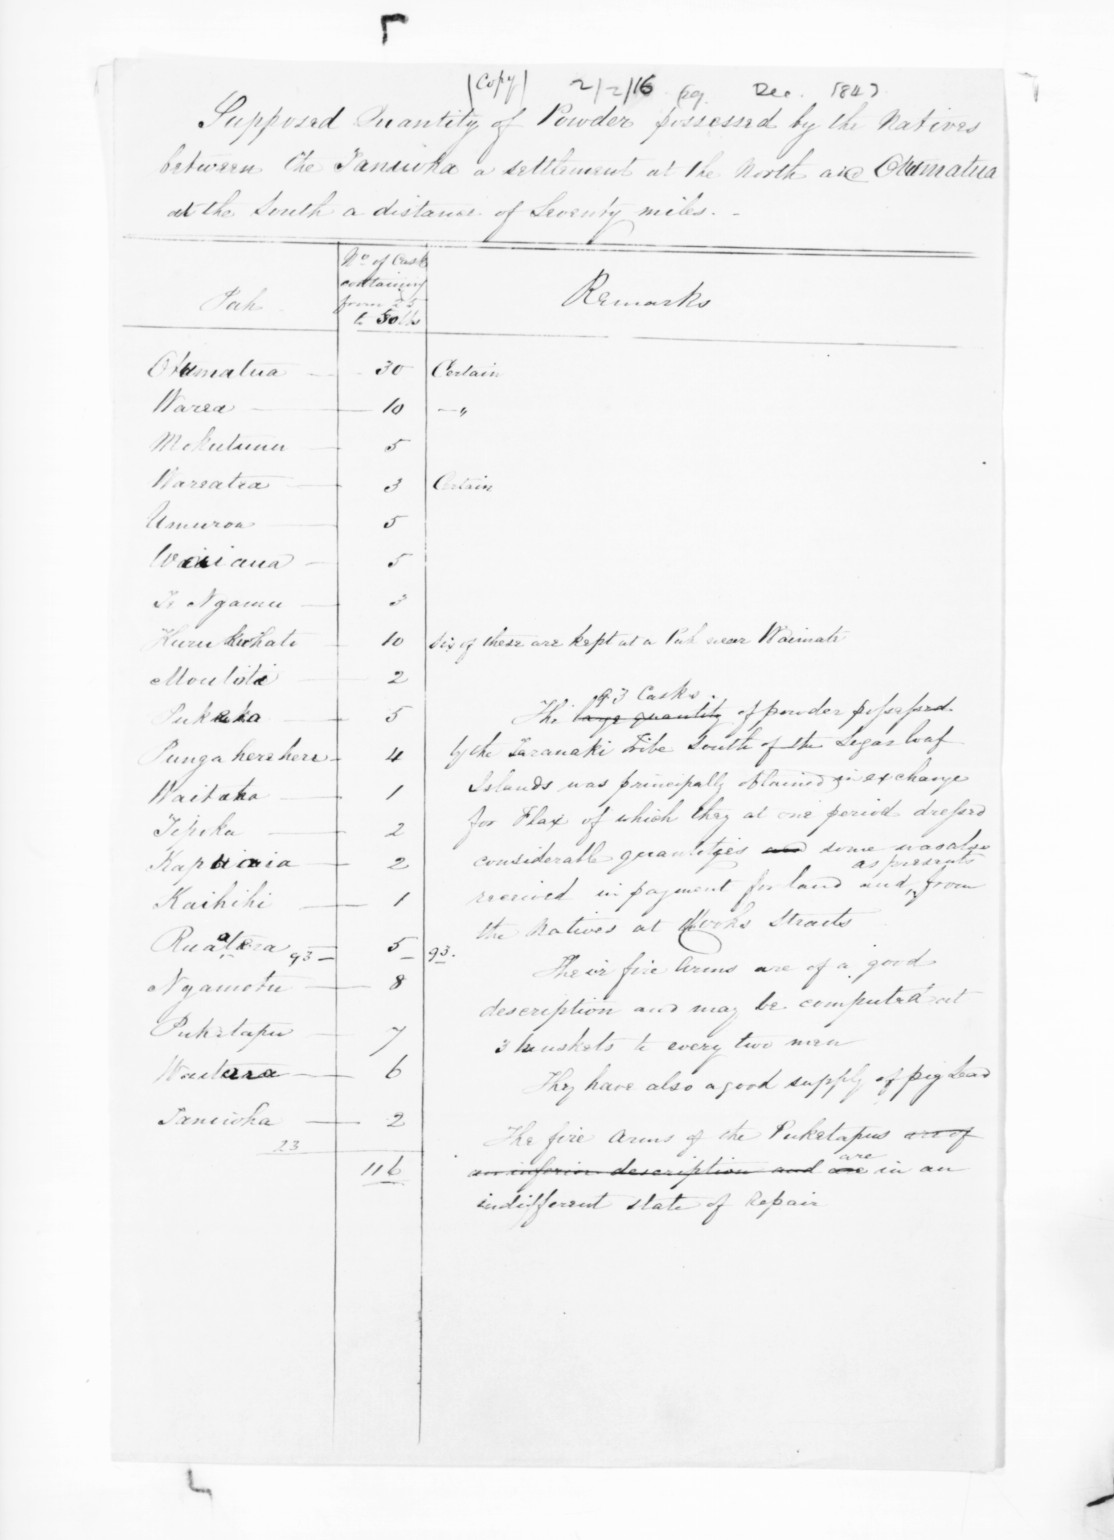 (Copy) 2/2/16 Dec. 1847
Supposed Quantity of Powder possessed by the Natives
between the Taniwha a settlement at the North and Okumatua
at the South a distance of Seventy miles. -
Pah
No of Casks
containing
from 25
to 50 lbs
Remarks
Okumatua 30 Certain
Warea 10 - "
Mokutunu 5
Wareatea 3 Certain
Umuroa 5
5
Te Ngamu 3
10 Six of these are kept at a Pah near Waimate
Moutoti 2
5
Punga herehere 4
Waitaha 1
Tipoka 2
2
Kaihihi 1
93 5 93.
Ngamotu 8
Puketapu 7
Waitara 6
Taniwha 2
23
116
93 Casks.
The large quantity of powder possessed
by the Taranaki Tribe South of the Sugar loaf
Islands was principally obtained in exchange
for Flax of which they at one period dressed
considerable quantities and some was also
as presents
received in payment for land and from
the Natives at Cooks Straits
Their fire Arms are of a good
description and may be computed at
3 muskets to every two men
They have also a good supply of pig Lead
The fire Arms of the Puketapus are of
are
an inferior description and are in an
indifferent state of Repair